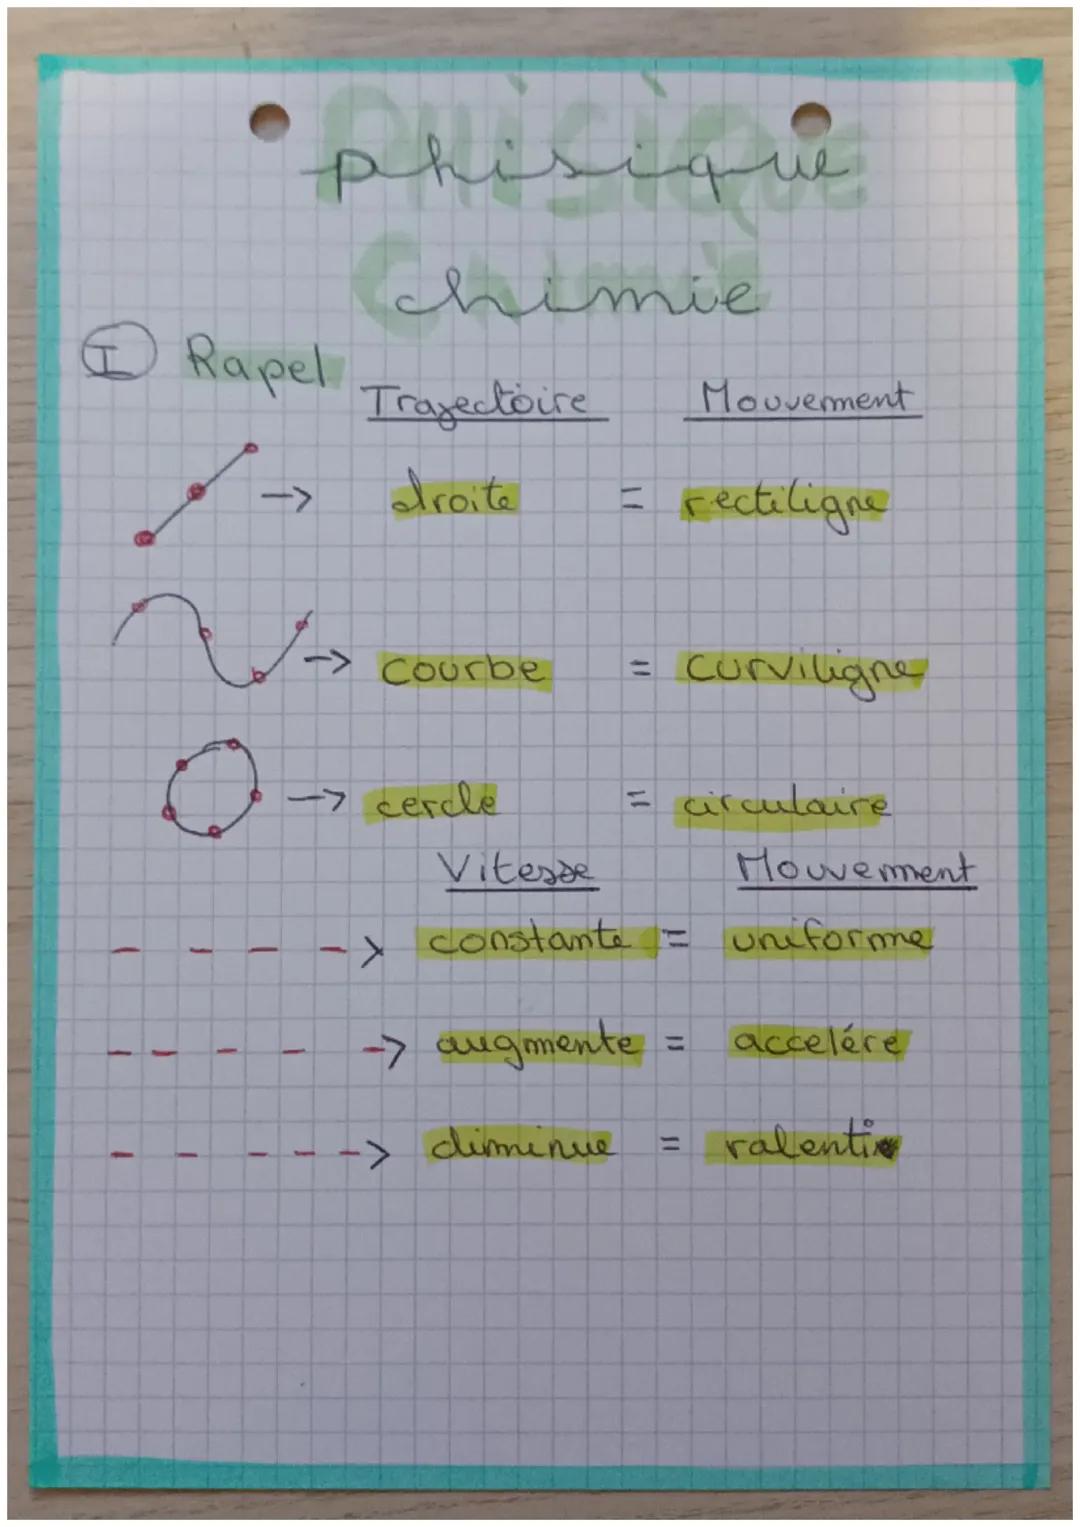 phisique
chimie
I Rapel
Trajectoire Mouvement
→ droite = rectiligne
→ courbe = curviligne
→ cercle = circulaire
Vitesse Mouvement
constante = uniforme
augmente = acceléré
diminue = ralenti